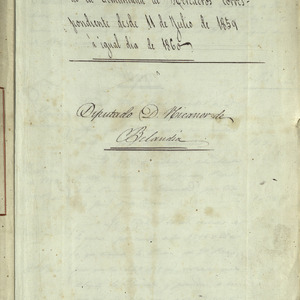 de la Comandancia de Herederos corres-
pondiente desde 11 de Julio de 1859
á igual dia de 1860
Diputado D. Nicanor de
Belandia